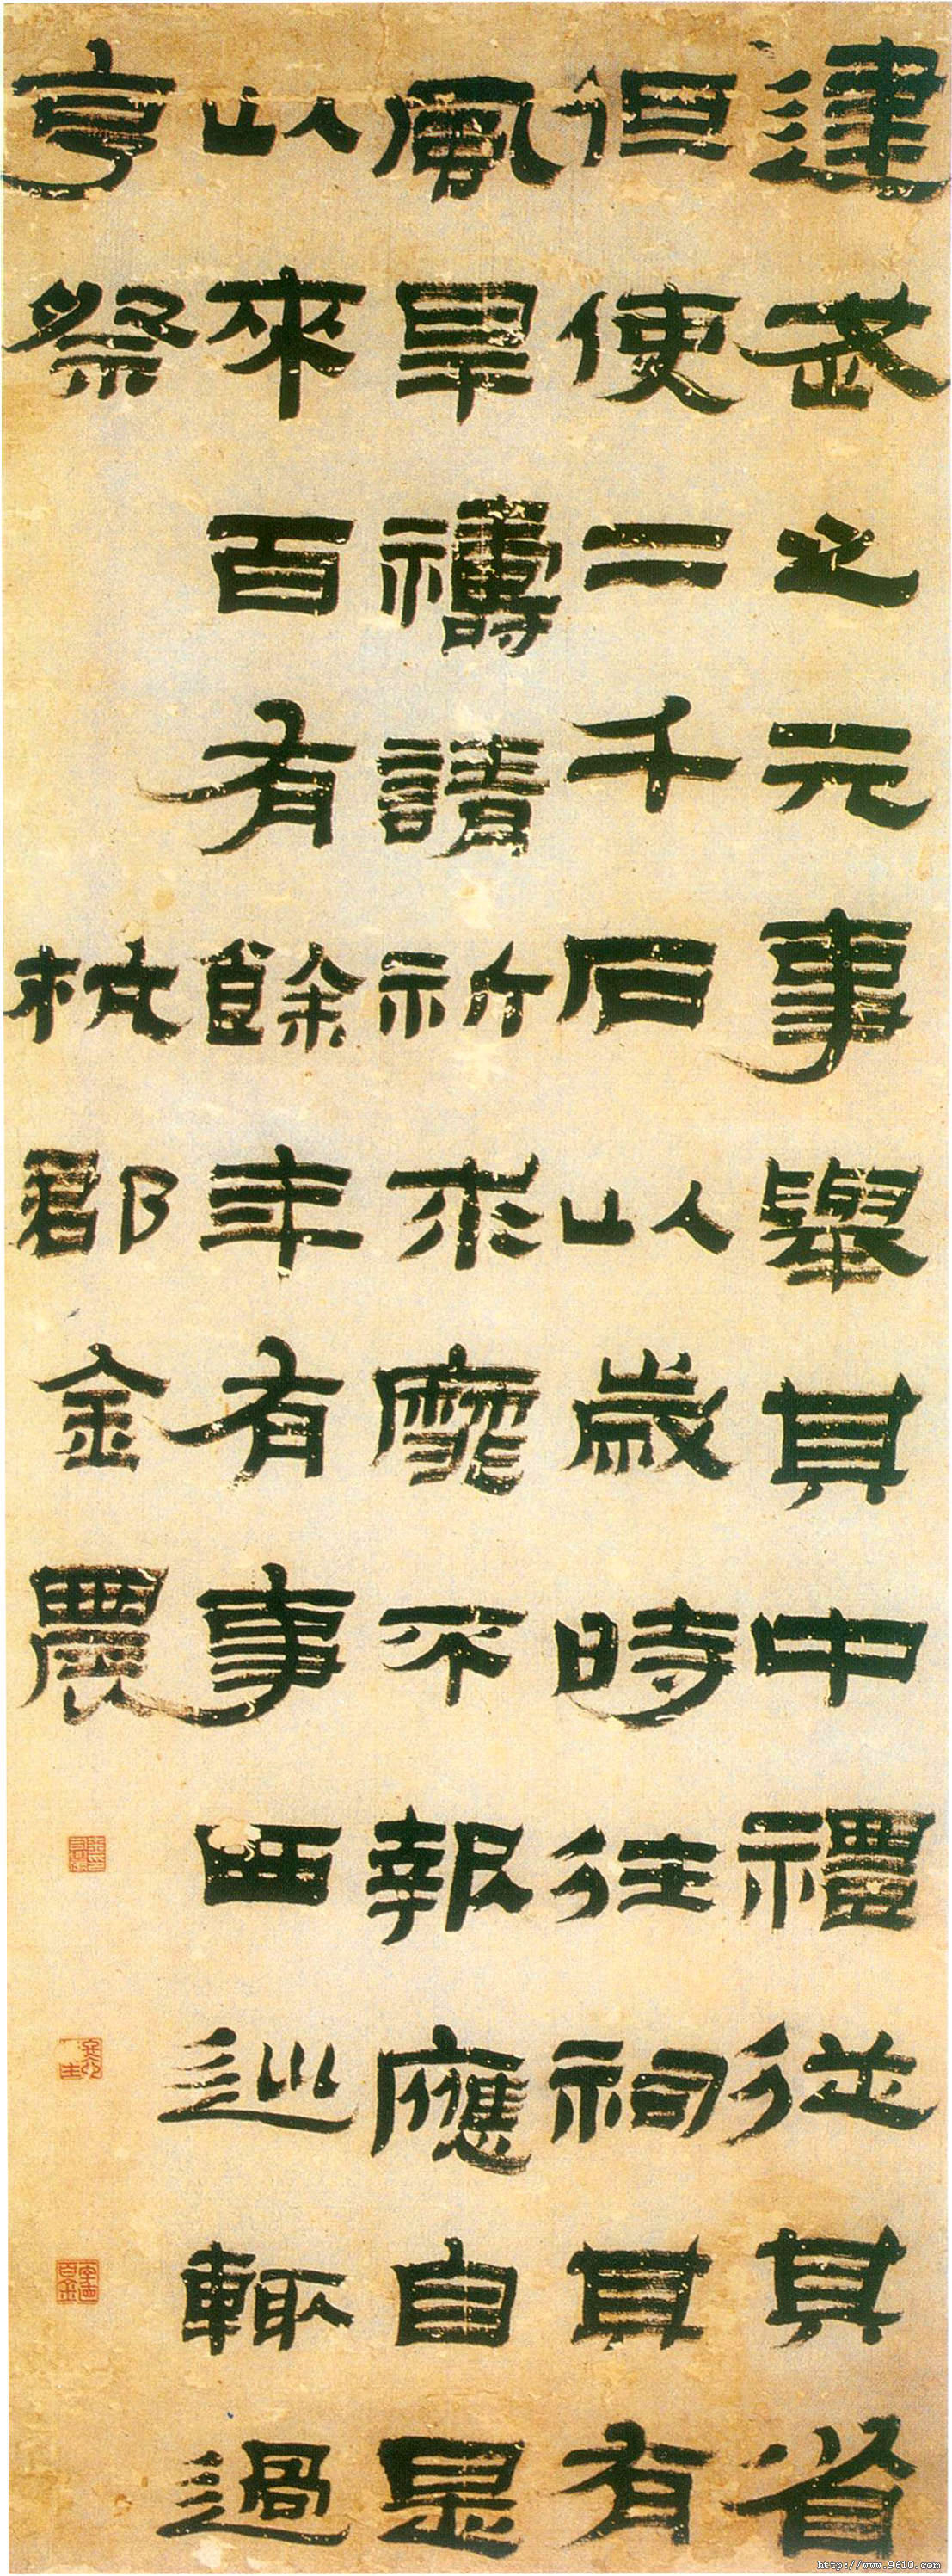 建武之元事舉其中禮從其省
但使二千石以歲時往祠其有
風旱禱請祈求靡不報應自是
以來百有餘年有事西巡輒過
亨祭　　杭郡金農
http://www.9610.com